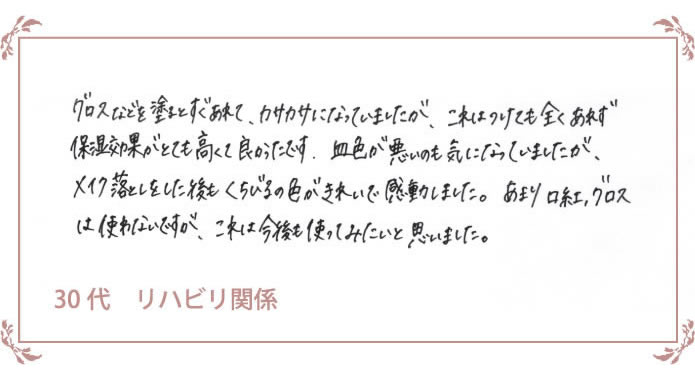 グロスなどを塗るとすぐあれて、カサカサになっていましたが、これはつけても全くあれず
保湿効果がとても高くて良かったです。血色が悪いのも気になっていましたが、
メイク落としをした後もくちびるの色がきれいで感動しました。あまり口紅,グロス
は使わないですが、これは今後も使ってみたいと思いました。
30代 リハビリ関係